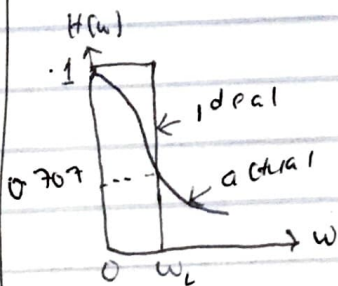 H(w)
.1
ideal
0.707
actual
w
0 WL